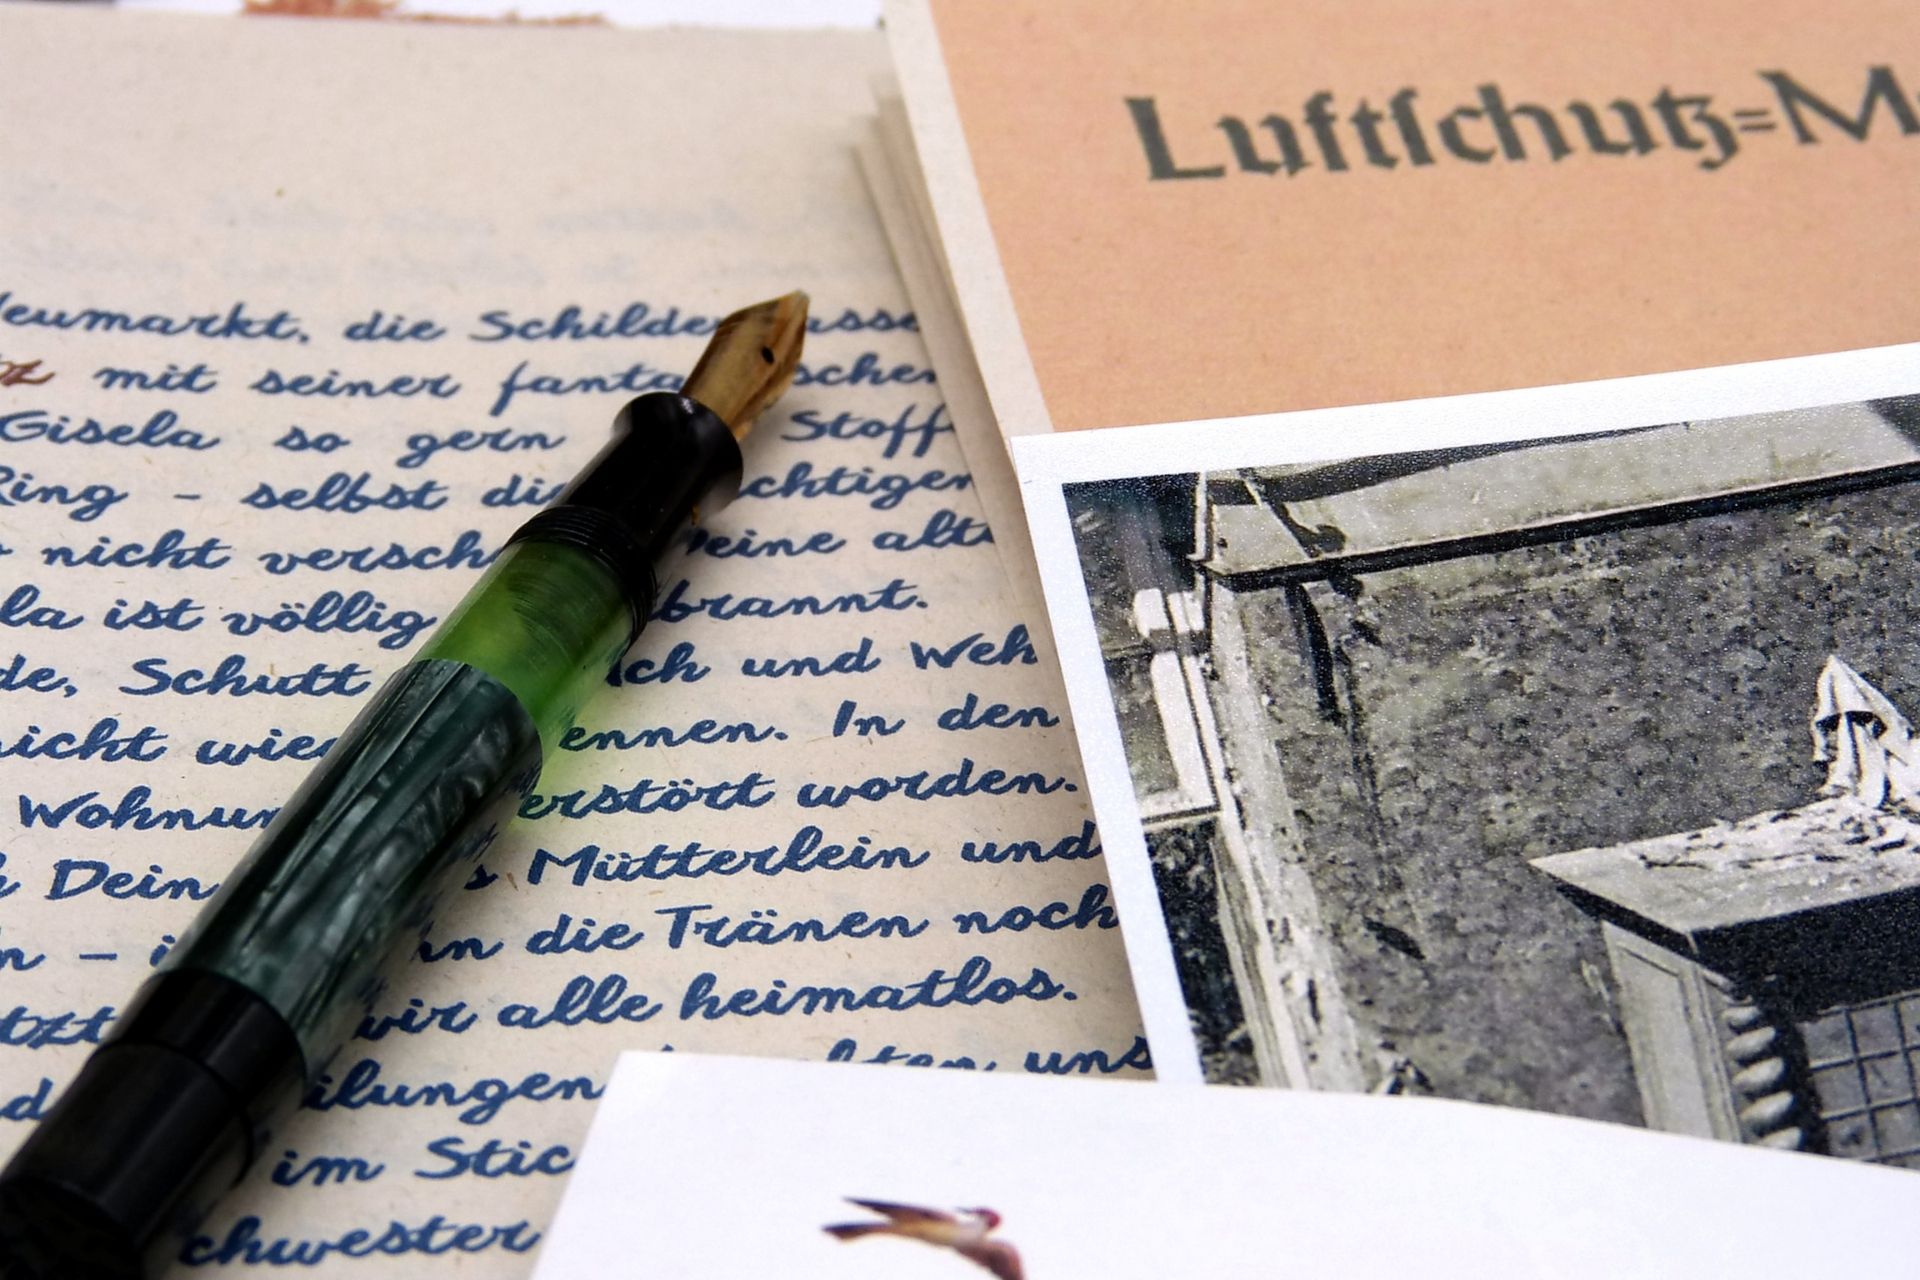 Luftſchutz=M
Neumarkt, die Schilder asse
mit seiner fanta schen
Gisela so gern Stoff
Ring – selbst die chtigen
nicht versch eine alte
la ist völlig brannt.
de, Schutt ch und Weh
nicht wie ennen. In den
Wohnun erstört worden.
Dein s Mütterlein und
n – i hn die Tränen noch
tzt wir alle heimatlos.
ilungen uns
im Stic
chwester